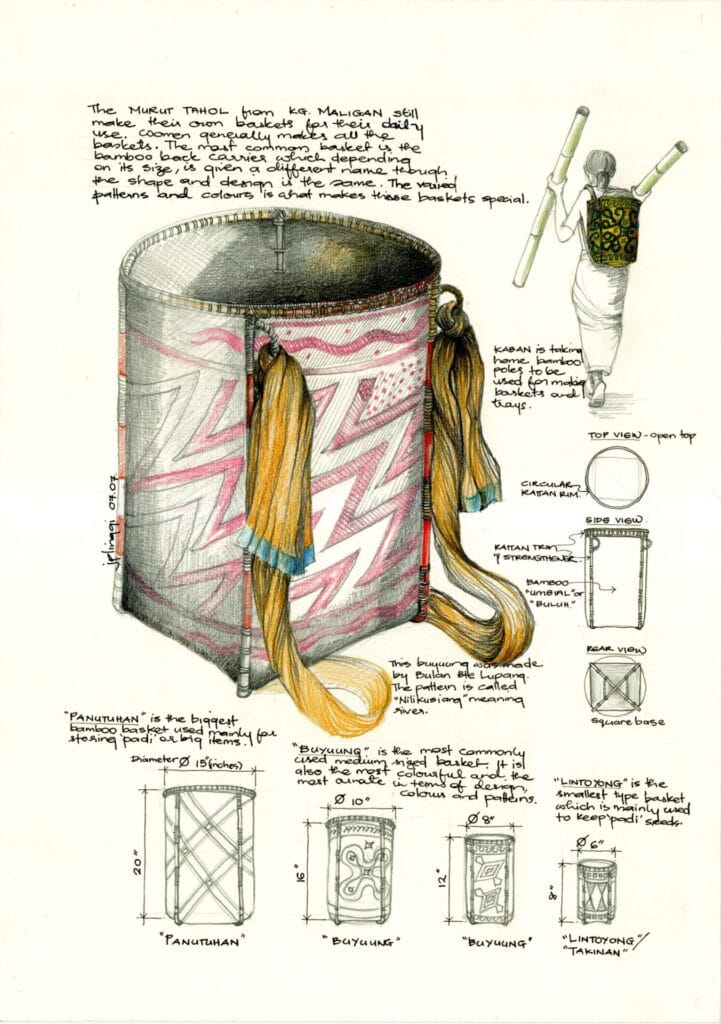 The MURUT TAHOL from KG. MALIGAN still
make their own baskets for their daily
use. Women generally makes all the
baskets. The most common basket is the
bamboo back carrier which depending
on its size, is given a different name though
the shape and design is the same. The varied
patterns and colours is what makes these baskets special.
KABAN is taking
home bamboo
poles to be
used for making
baskets and
trays.
TOP VIEW - open top
CIRCULAR
RATTAN RIM.
SIDE VIEW
RATTAN TRIM
& STRENGTHENER
BAMBOO
"UMBIAL" or
"BULUH."
REAR VIEW
square base
jrlinggi 07.07
This buyuung was made
by Bulan Bte Lupang.
The pattern is called
"Nilikusiang" meaning
river.
"PANUTUHAN" is the biggest
bamboo basket used mainly for
storing 'padi' or big items.
"BUYUUNG" is the most commonly
used medium sized basket. It is
also the most colourful and the
most ornate in terms of design,
colours and patterns.
"LINTOYONG" is the
smallest type basket
which is mainly used
to keep 'padi' seeds.
Diameter Ø 15" (inches)
20"
"PANUTUHAN"
Ø 10"
16"
"BUYUUNG"
Ø 8"
12"
"BUYUUNG"
Ø 6"
8"
"LINTOYONG"/
"TAKINAN"